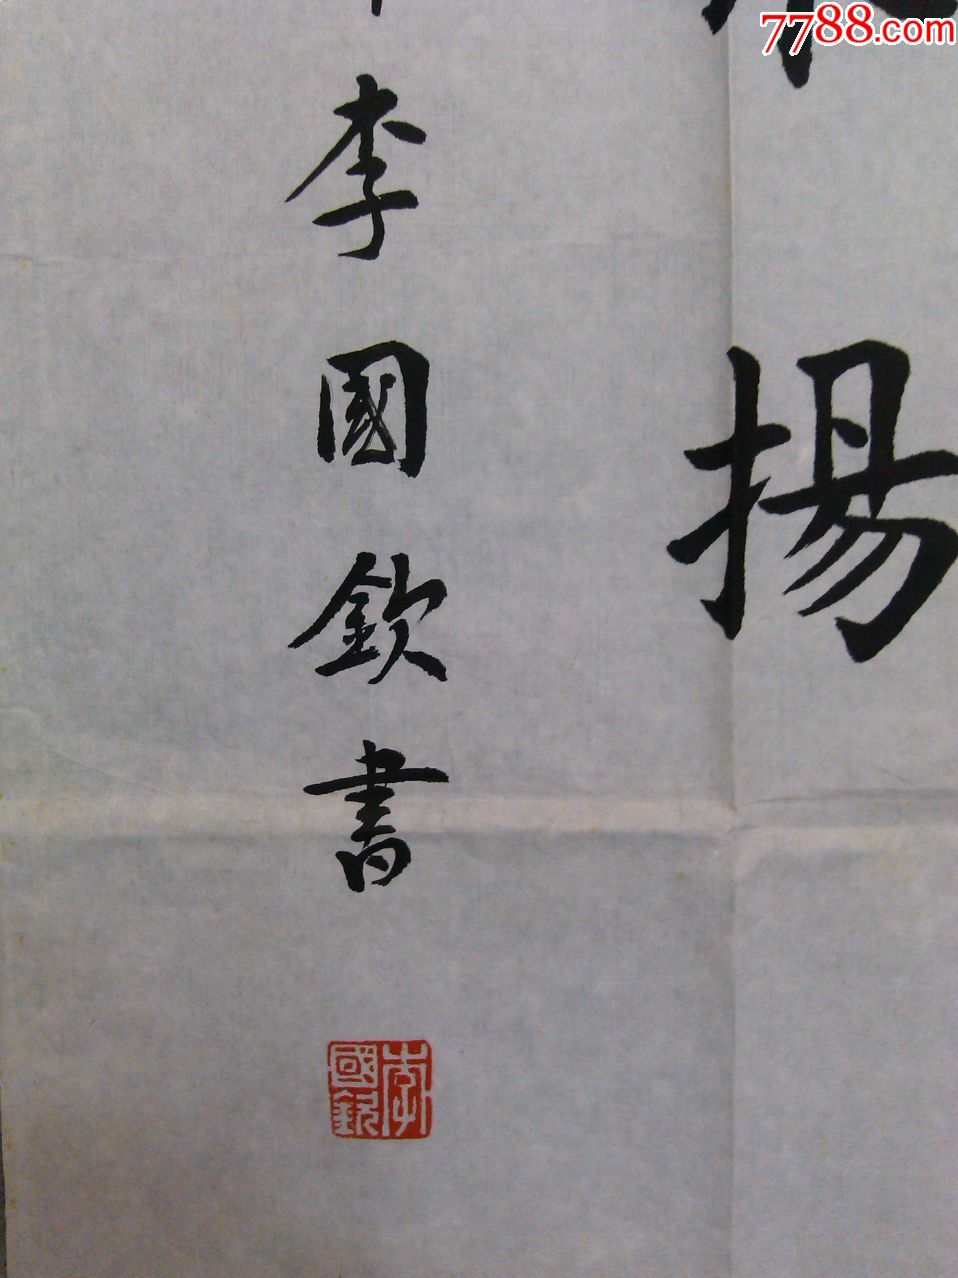 7788.com
揚
李國欽書
李國欽